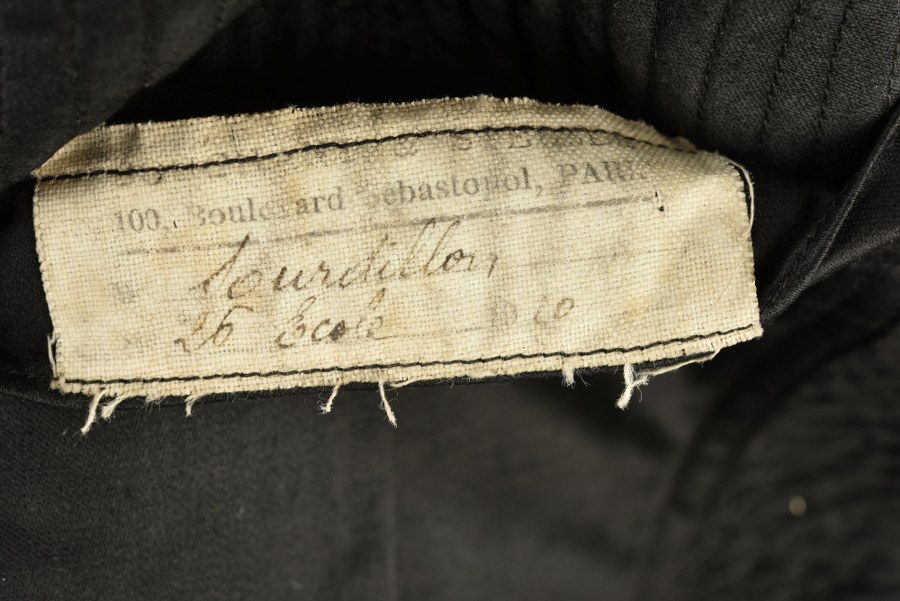 100, Boulevard Sebastopol, PARIS
Sourdillon,
26 Ecole 10